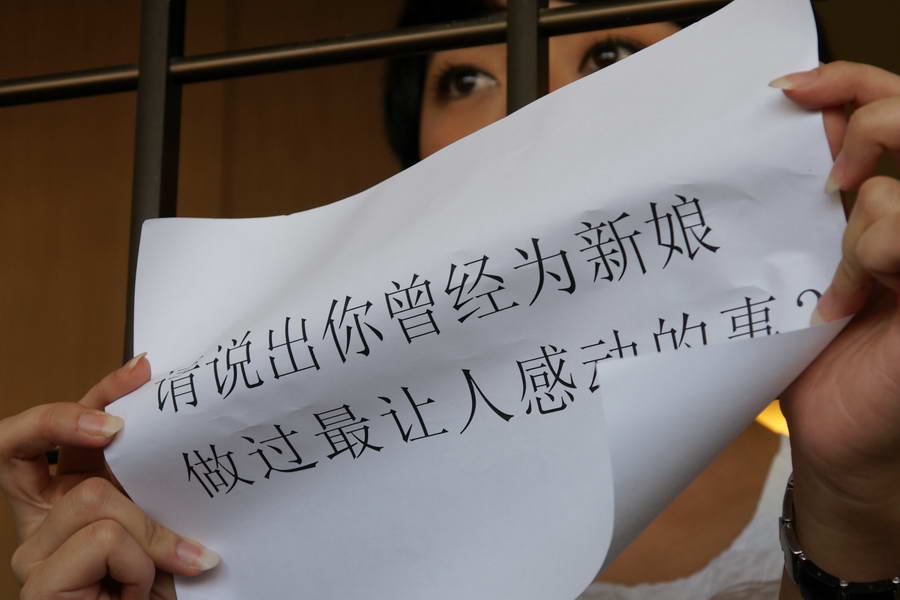 请说出你曾经为新娘
做过最让人感动的事?